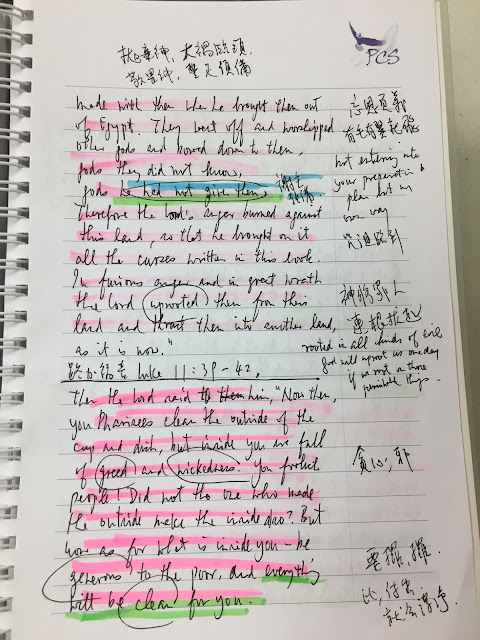 大禍臨頭.
敬畏神,
PCS
made with them when he brought them out
of Egypt. They went off and worshipped
other gods and bowed down to them,
gods they did not know,
gods he had not given them,
Therefore the Lord's anger burned against
this land, so that he brought on it
all the curses written in this book.
In furious anger and in great wrath
the Lord uprooted them from their
land and thrust them into another land,
as it is now."
忘恩負義
not entering into
your preparation &
plan but in
our way
咒詛臨到
神將罪人
連根拔起
rooted in all kinds of evil
God will uproot us one day
if we root in those
perishable things.
路加福音 Luke 11:39-42,
Then the Lord said to him, "Now then,
you Pharisees clean the outside of the
cup and dish, but inside you are full
of greed and wickedness. You foolish
people! Did not the one who made
the outside make the inside also? But
now as for what is inside you - be
generous to the poor, and everything
will be clean for you.
貪心, 邪
就会潔净